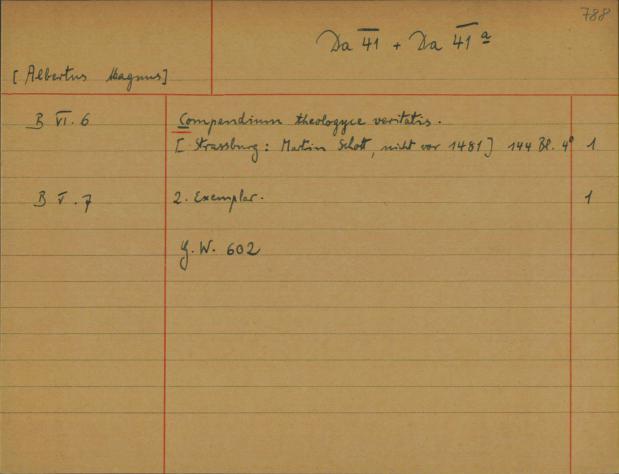 788
Da 41 + Da 41 a
[Albertus Magnus]
B VI. 6 Compendium theologyce veritatis.
[Strassburg: Martin Schott, nicht vor 1481] 144 Bl. 4° 1
B V. 7 2. Exemplar. 1
G.W. 602